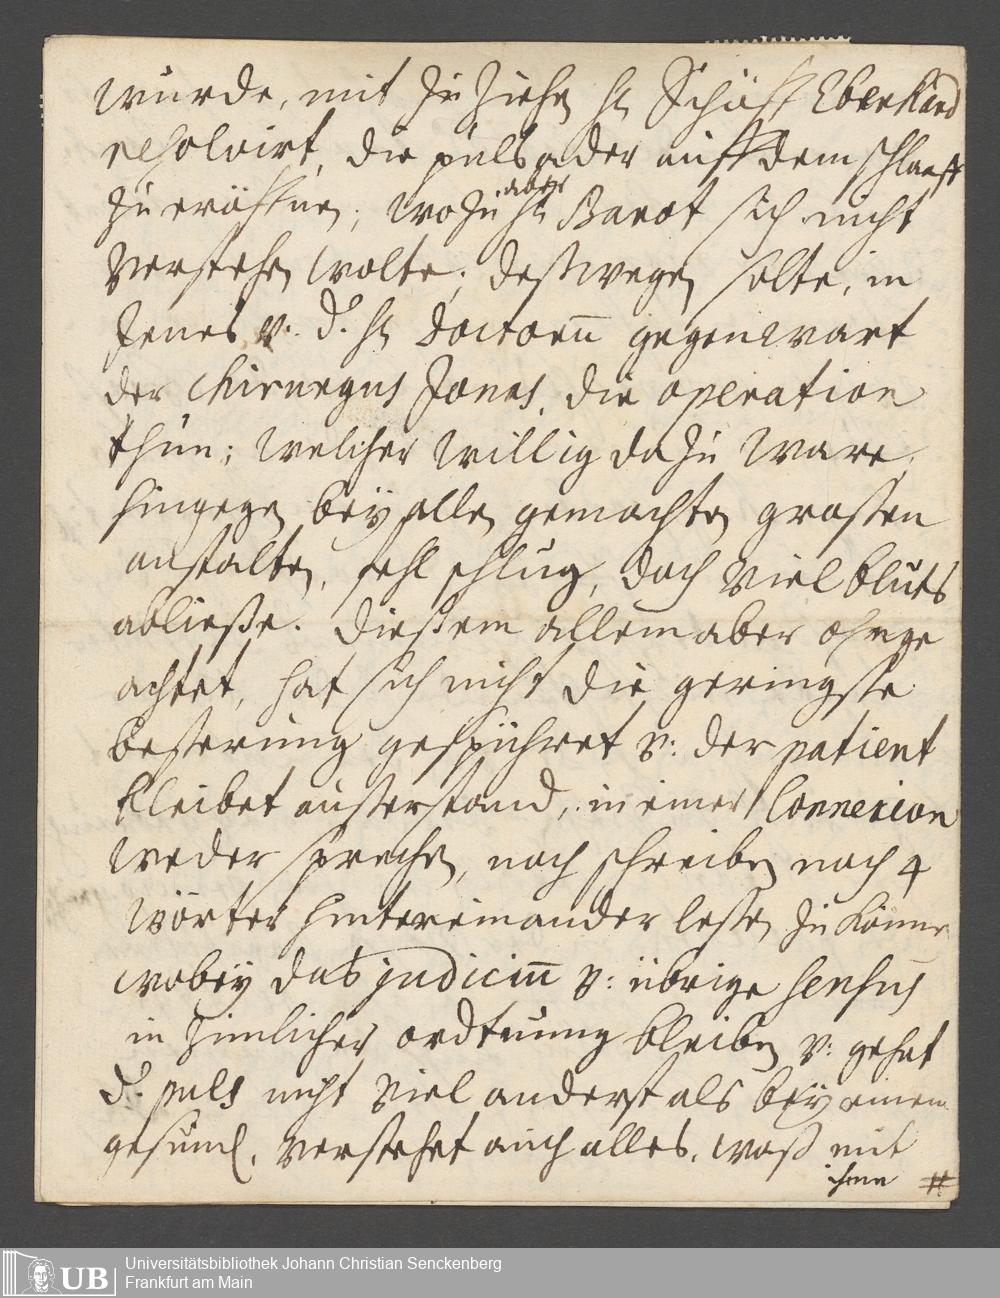 wurde, mit zu ziehen H. Schäff Eberhard
resolvirt, die pulsader auff dem schlaaff
zu eröffnen; wozu aber H. Barot sich nicht
verstehen wolte; deßwegen solte, in
Jenes v. d. H. Doctorn gegenwart
der chirurgus Jonas, die operation
thun; welcher willig dazu ware,
hingegen bey allen gemachten grossen
anstalten, fehl schlug, doch viel bluts
abließe. Dießem allem aber ohnge
achtet, hat sich nicht die geringste
besserung gespühret v: der patient
bleibet ausserstand, in einer Connexion
weder sprechen, noch schreiben noch 4
wörter hintereinander lesen zu könne
wobey das judiciū v: übrige sensus
in zimlicher ordtnung bleiben v: gehet
d. puls nicht viel anderst als bey einem
gesund, verstehet auch alles, waß mit
ihme #
Universitätsbibliothek Johann Christian Senckenberg
Frankfurt am Main
UB